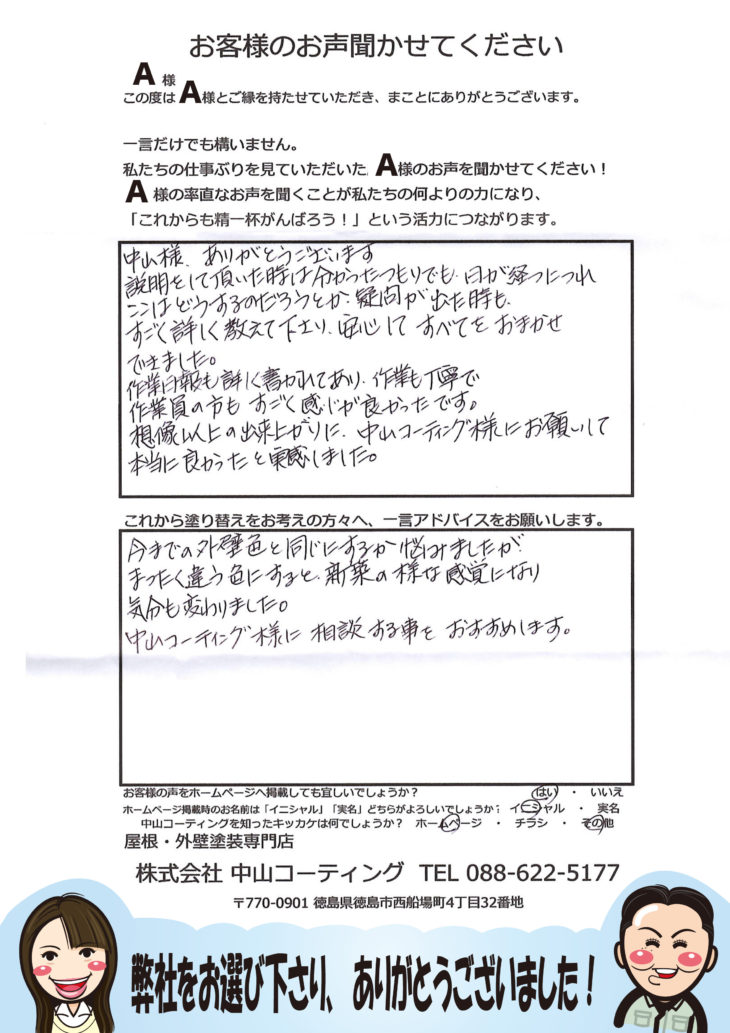 お客様のお声聞かせてください
A 様
この度は A様とご縁を持たせていただき、まことにありがとうございます。
一言だけでも構いません。
私たちの仕事ぶりを見ていただいた A様のお声を聞かせてください！
A 様の率直なお声を聞くことが私たちの何よりの力になり、
「これからも精一杯がんばろう！」という活力につながります。
中山様、ありがとうございます
説明をして頂いた時は分かったつもりでも、日が経つにつれ
ここはどうするのだろうとか、疑問が出た時も、
すごく詳しく教えて下さり、安心して すべてを おまかせ
できました。
作業日報も詳しく書かれてあり、作業も丁寧で
作業員の方も すごく感じが良かったです。
想像以上の出来上がりに、中山コーティング様にお願いして
本当に良かったと実感しました。
これから塗り替えをお考えの方々へ、一言アドバイスをお願いします。
今までの外壁色と同じにするか悩みましたが、
まったく違う色にすると、新築の様な感覚になり
気分も変わりました。
中山コーティング様に 相談する事を おすすめします。
お客様の声をホームページへ掲載しても宜しいでしょうか？ はい ・ いいえ
ホームページ掲載時のお名前は「イニシャル」「実名」どちらがよろしいでしょうか？ イニシャル ・ 実名
中山コーティングを知ったキッカケは何でしょうか？ ホームページ ・ チラシ ・ その他
屋根・外壁塗装専門店
株式会社 中山コーティング TEL 088-622-5177
〒770-0901 徳島県徳島市西船場町4丁目32番地
弊社をお選び下さり、ありがとうございました！